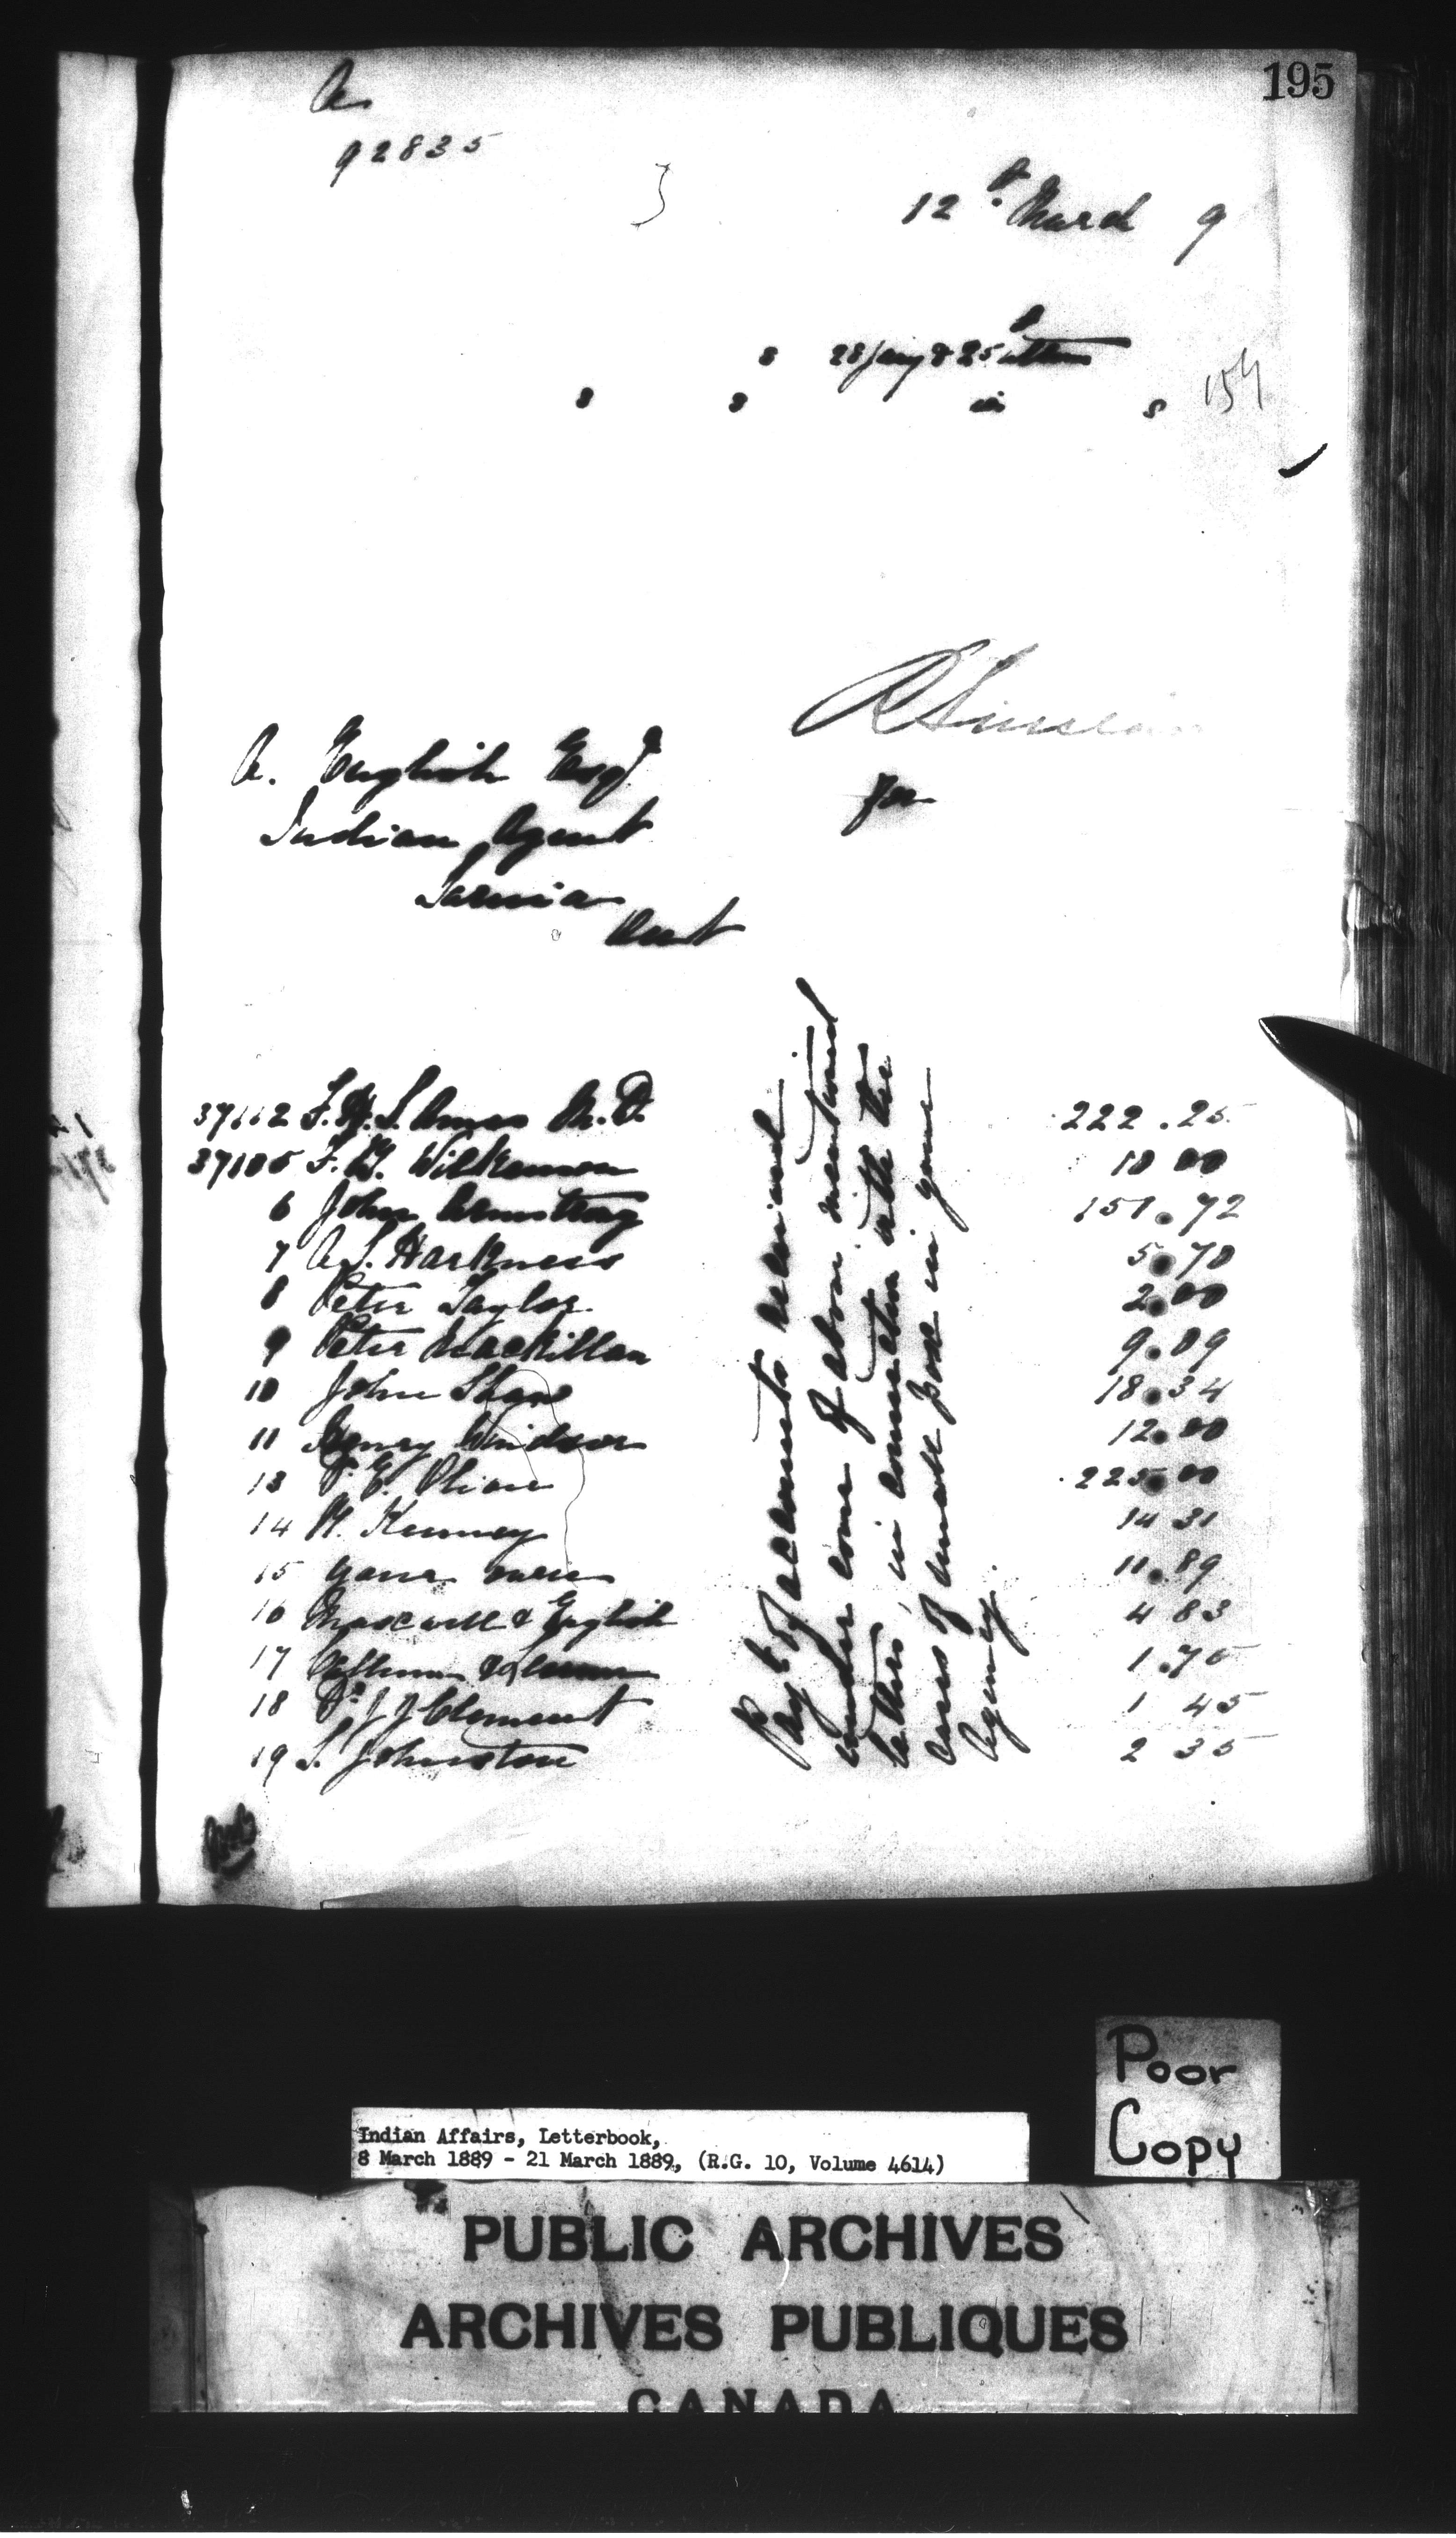 195
A
92835
12th March 9
s 28 Jany & 25 ultimo
s s in s
154
R Sinclair
for
A. English Esqr
Indian Agent
Sarnia
Ont
37112 F. W. S. M.D. 222.25
37105 F. Wilkinson 10 00
6 John Armstrong 151.72
7 A S. Harkness 5.70
8 Peter Taylor 2.00
9 Peter MacKillan 9.09
10 John Shaw 18.34
11 Henry Windsor 12.00
13 225.00
14 Kenney 14 31
15 11.89
16 Maxwell & English 4 83
17 1.75
18 Dr J J Clement 1 45
19 S. Johnston 2 35
Payt of accounts received
under cover of above mentioned
letters, in connection with the
cases of small pox in your
Agency.
Poor
Copy
Indian Affairs, Letterbook,
8 March 1889 - 21 March 1889, (R.G. 10, Volume 4614)
PUBLIC ARCHIVES
ARCHIVES PUBLIQUES
CANADA